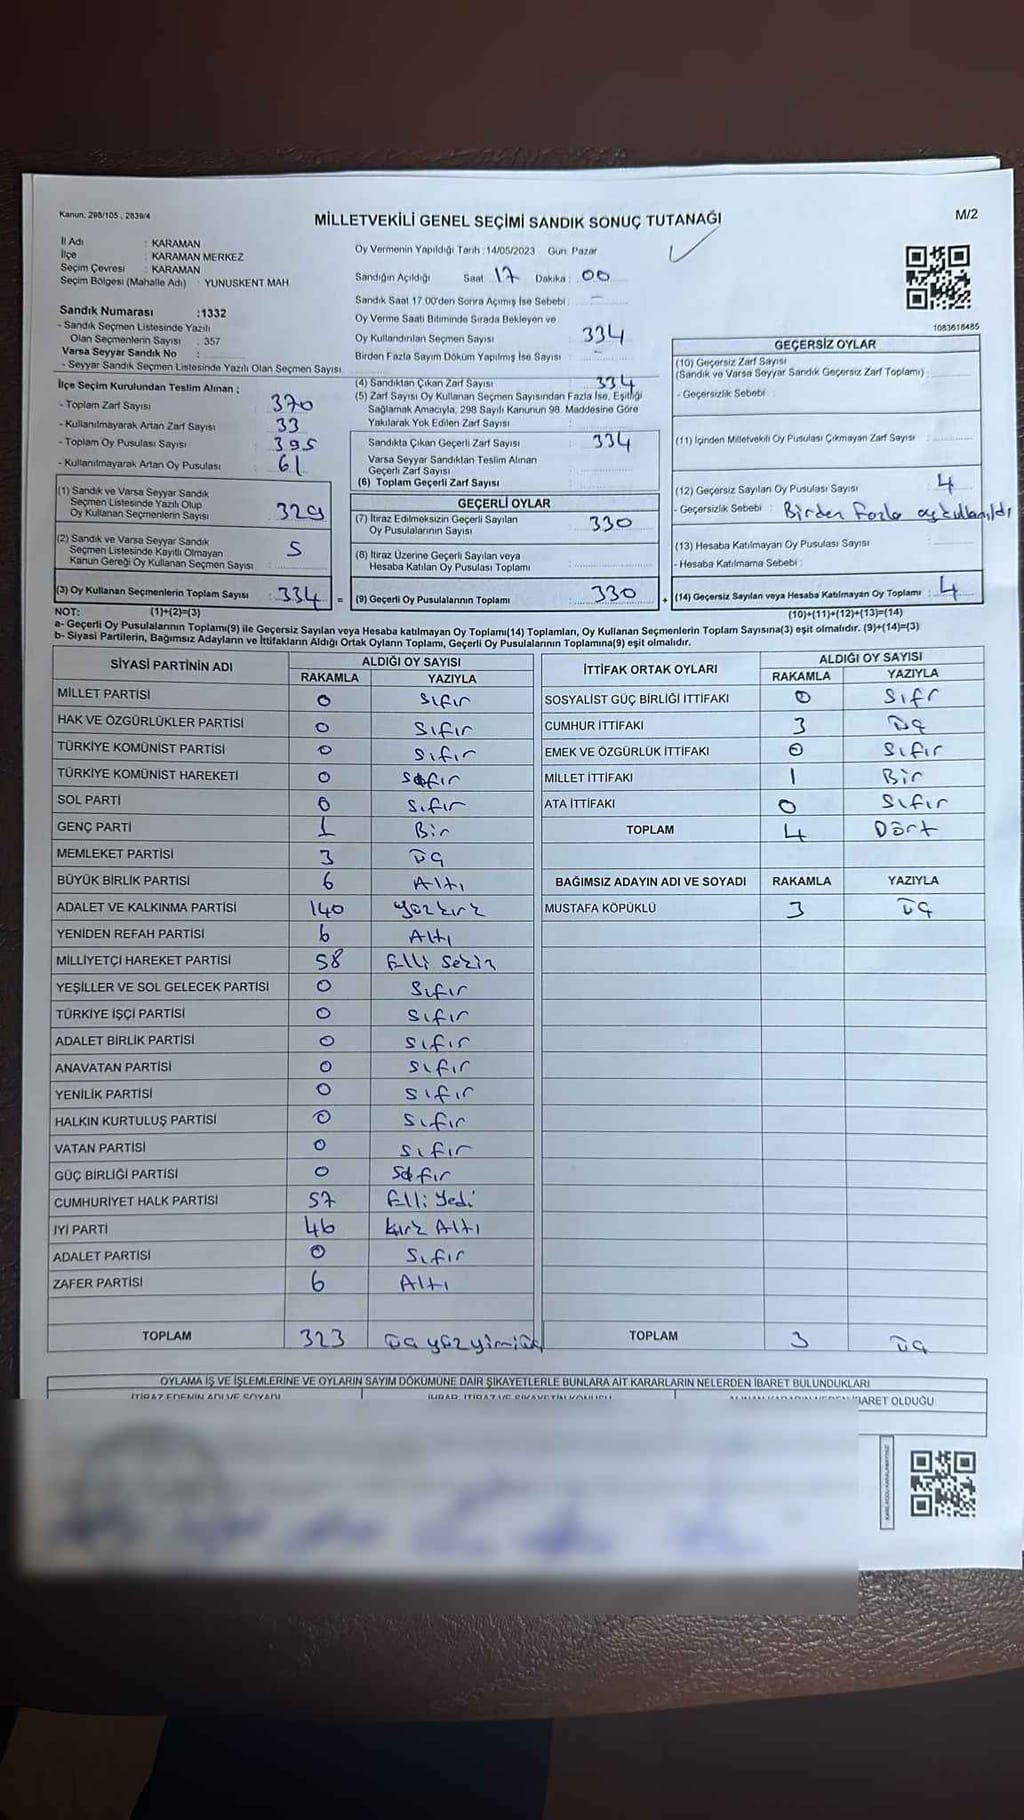 Kanun: 298/105 , 2839/4
MİLLETVEKİLİ GENEL SEÇİMİ SANDIK SONUÇ TUTANAĞI
M/2
İl Adı : KARAMAN
İlçe : KARAMAN MERKEZ
Seçim Çevresi : KARAMAN
Seçim Bölgesi (Mahalle Adı) : YUNUSKENT MAH.
Sandık Numarası :1332
- Sandık Seçmen Listesinde Yazılı
Olan Seçmenlerin Sayısı : 357
Varsa Seyyar Sandık No :
- Seyyar Sandık Seçmen Listesinde Yazılı Olan Seçmen Sayısı
Oy Vermenin Yapıldığı Tarih :14/05/2023 Gün: Pazar
Sandığın Açıldığı Saat 17 Dakika : 00
Sandık Saat 17:00'den Sonra Açımış İse Sebebi : -
Oy Verme Saati Bitiminde Sırada Bekleyen ve
Oy Kullandırılan Seçmen Sayısı : 334
Birden Fazla Sayım Döküm Yapılmış İse Sayısı : -
1083616485
İlçe Seçim Kurulundan Teslim Alınan ;
- Toplam Zarf Sayısı : 370
- Kullanılmayarak Artan Zarf Sayısı : 33
- Toplam Oy Pusulası Sayısı : 395
- Kullanılmayarak Artan Oy Pusulası : 61
(1) Sandık ve Varsa Seyyar Sandık
Seçmen Listesinde Yazılı Olup
Oy Kullanan Seçmenlerin Sayısı : 329
(2) Sandık ve Varsa Seyyar Sandık
Seçmen Listesinde Kayıtlı Olmayan
Kanun Gereği Oy Kullanan Seçmen Sayısı : 5
(3) Oy Kullanan Seçmenlerin Toplam Sayısı : 334 =
(1)+(2)=(3)
(4) Sandıktan Çıkan Zarf Sayısı : 334
(5) Zarf Sayısı Oy Kullanan Seçmen Sayısından Fazla İse, Eşitliği
Sağlamak Amacıyla, 298 Sayılı Kanunun 98. Maddesine Göre
Yakılarak Yok Edilen Zarf Sayısı :
Sandıkta Çıkan Geçerli Zarf Sayısı : 334
Varsa Seyyar Sandıktan Teslim Alınan
Geçerli Zarf Sayısı :
(6) Toplam Geçerli Zarf Sayısı :
GEÇERLİ OYLAR
(7) İtiraz Edilmeksizin Geçerli Sayılan
Oy Pusulalarının Sayısı : 330
(8) İtiraz Üzerine Geçerli Sayılan veya
Hesaba Katılan Oy Pusulası Toplamı :
(9) Geçerli Oy Pusulalarının Toplamı : 330 +
GEÇERSİZ OYLAR
(10) Geçersiz Zarf Sayısı
(Sandık ve Varsa Seyyar Sandık Geçersiz Zarf Toplamı) :
- Geçersizlik Sebebi :
(11) İçinden Milletvekili Oy Pusulası Çıkmayan Zarf Sayısı :
(12) Geçersiz Sayılan Oy Pusulası Sayısı : 4
- Geçersizlik Sebebi : Birden fazla oy kullanıldı
(13) Hesaba Katılmayan Oy Pusulası Sayısı :
- Hesaba Katılmama Sebebi :
(14) Geçersiz Sayılan veya Hesaba Katılmayan Oy Toplamı : 4
(10)+(11)+(12)+(13)=(14)
NOT:
a- Geçerli Oy Pusulalarının Toplamı(9) ile Geçersiz Sayılan veya Hesaba katılmayan Oy Toplamı(14) Toplamları, Oy Kullanan Seçmenlerin Toplam Sayısına(3) eşit olmalıdır. (9)+(14)=(3)
b- Siyasi Partilerin, Bağımsız Adayların ve İttifakların Aldığı Ortak Oyların Toplamı, Geçerli Oy Pusulalarının Toplamına(9) eşit olmalıdır.
SİYASİ PARTİNİN ADI ALDIĞI OY SAYISI
RAKAMLA YAZIYLA
MİLLET PARTİSİ 0 Sıfır
HAK VE ÖZGÜRLÜKLER PARTİSİ 0 Sıfır
TÜRKİYE KOMÜNİST PARTİSİ 0 Sıfır
TÜRKİYE KOMÜNİST HAREKETİ 0 Sıfır
SOL PARTİ 0 Sıfır
GENÇ PARTİ 1 Bir
MEMLEKET PARTİSİ 3 Üç
BÜYÜK BİRLİK PARTİSİ 6 Altı
ADALET VE KALKINMA PARTİSİ 140 Yüzkırk
YENİDEN REFAH PARTİSİ 6 Altı
MİLLİYETÇİ HAREKET PARTİSİ 58 Elli Sekiz
YEŞİLLER VE SOL GELECEK PARTİSİ 0 Sıfır
TÜRKİYE İŞÇİ PARTİSİ 0 Sıfır
ADALET BİRLİK PARTİSİ 0 Sıfır
ANAVATAN PARTİSİ 0 Sıfır
YENİLİK PARTİSİ 0 Sıfır
HALKIN KURTULUŞ PARTİSİ 0 Sıfır
VATAN PARTİSİ 0 Sıfır
GÜÇ BİRLİĞİ PARTİSİ 0 Sıfır
CUMHURİYET HALK PARTİSİ 57 Elli Yedi
İYİ PARTİ 46 Kırk Altı
ADALET PARTİSİ 0 Sıfır
ZAFER PARTİSİ 6 Altı
TOPLAM 323 Üç yüz yirmi üç
İTTİFAK ORTAK OYLARI ALDIĞI OY SAYISI
RAKAMLA YAZIYLA
SOSYALİST GÜÇ BİRLİĞİ İTTİFAKI 0 Sıfr
CUMHUR İTTİFAKI 3 Üç
EMEK VE ÖZGÜRLÜK İTTİFAKI 0 Sıfır
MİLLET İTTİFAKI 1 Bir
ATA İTTİFAKI 0 Sıfır
TOPLAM 4 Dört
BAĞIMSIZ ADAYIN ADI VE SOYADI RAKAMLA YAZIYLA
MUSTAFA KÖPÜKLÜ 3 Üç
TOPLAM 3 Üç
OYLAMA İŞ VE İŞLEMLERİNE VE OYLARIN SAYIM DÖKÜMÜNE DAİR ŞİKAYETLERLE BUNLARA AİT KARARLARIN NELERDEN İBARET BULUNDUKLARI
İTİRAZ EDENİN ADI VE SOYADI
İBARET OLDUĞU